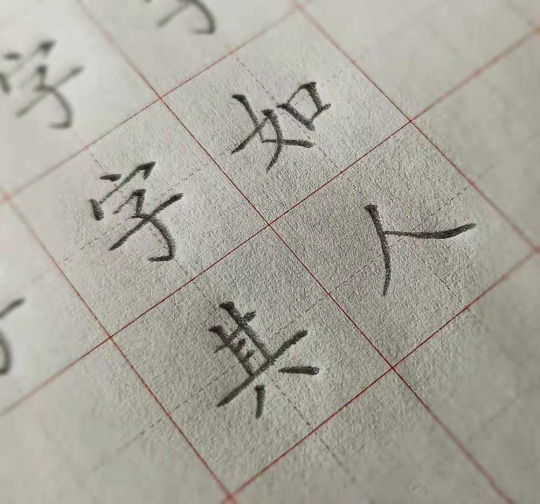 字
字如
其人